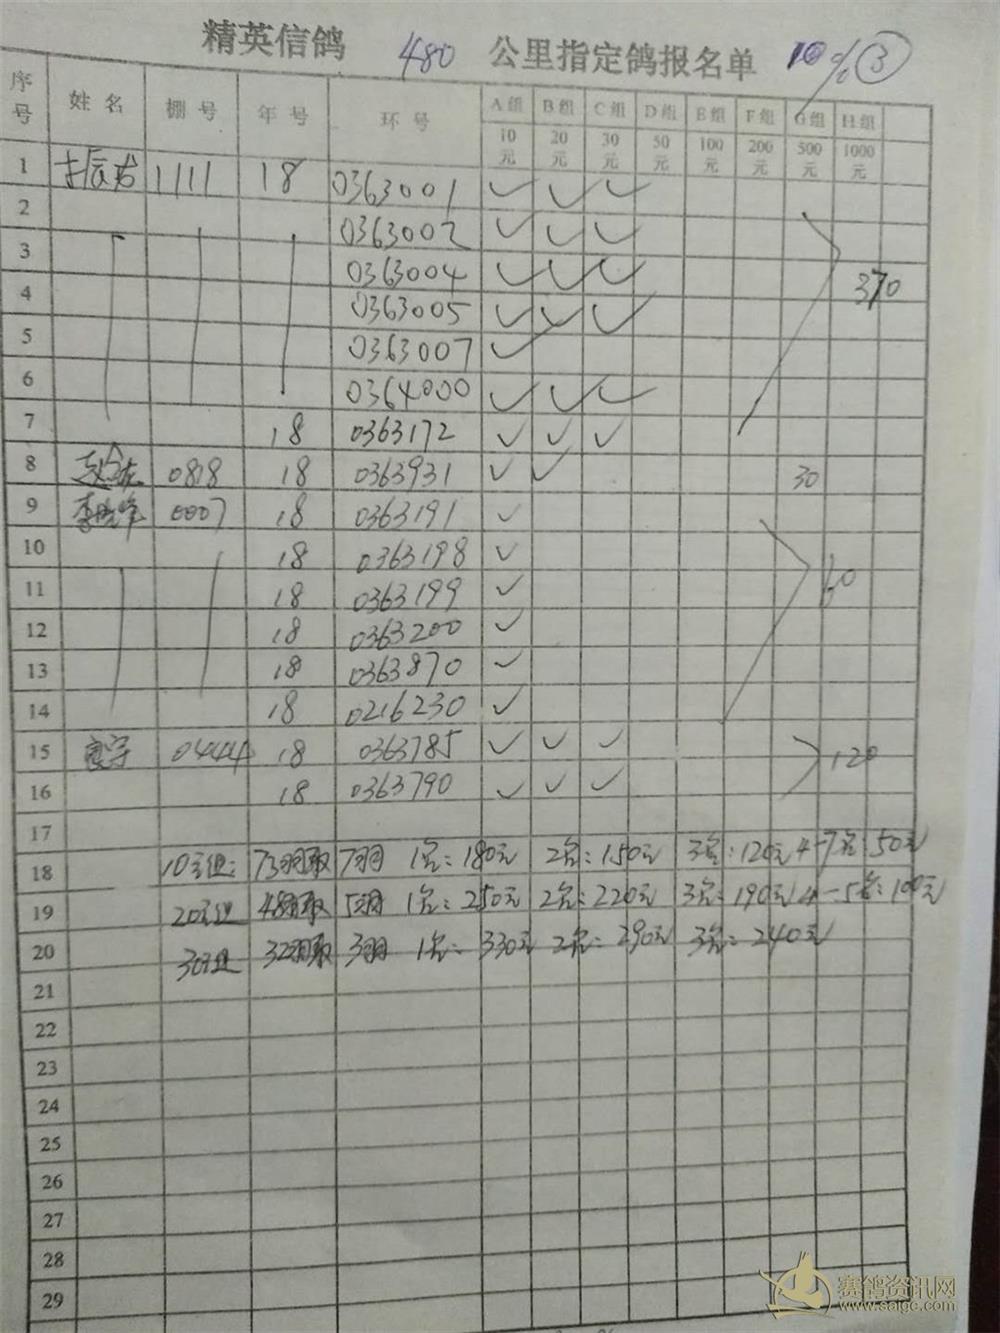 精英信鸽 480 公里指定鸽报名单 10% ③
序号 姓名 棚号 年号 环号 A组 B组 C组 D组 E组 F组 G组 H组
10元 20元 30元 50元 100元 200元 500元 1000元
1 1111 18 0363001 ✓ ✓ ✓
2 0363002 ✓ ✓ ✓
3 0363004 ✓ ✓ ✓ 370
4 0363005 ✓ ✓ ✓
5 0363007 ✓
6 0364000 ✓ ✓ ✓
7 18 0363172 ✓ ✓ ✓
8 0818 18 0363931 ✓ ✓ 30
9 李晓峰 0007 18 0363191 ✓
10 18 0363198 ✓
11 18 0363199 ✓ 60
12 18 0363200 ✓
13 18 0363870 ✓
14 18 0216230 ✓
15 0444 18 0363785 ✓ ✓ ✓ 120
16 18 0363790 ✓ ✓ ✓
17
18 10元组: 73羽取7羽 1名: 180元 2名: 150元 3名: 120元 4-7名: 50元
19 20元组 48羽取5羽 1名: 250元 2名: 220元 3名: 190元 4-5名: 100元
20 30元组 32羽取3羽 1名: 330元 2名: 290元 3名: 240元
21
22
23
24
25
26
27
28
29
赛鸽资讯网
www.saige.com